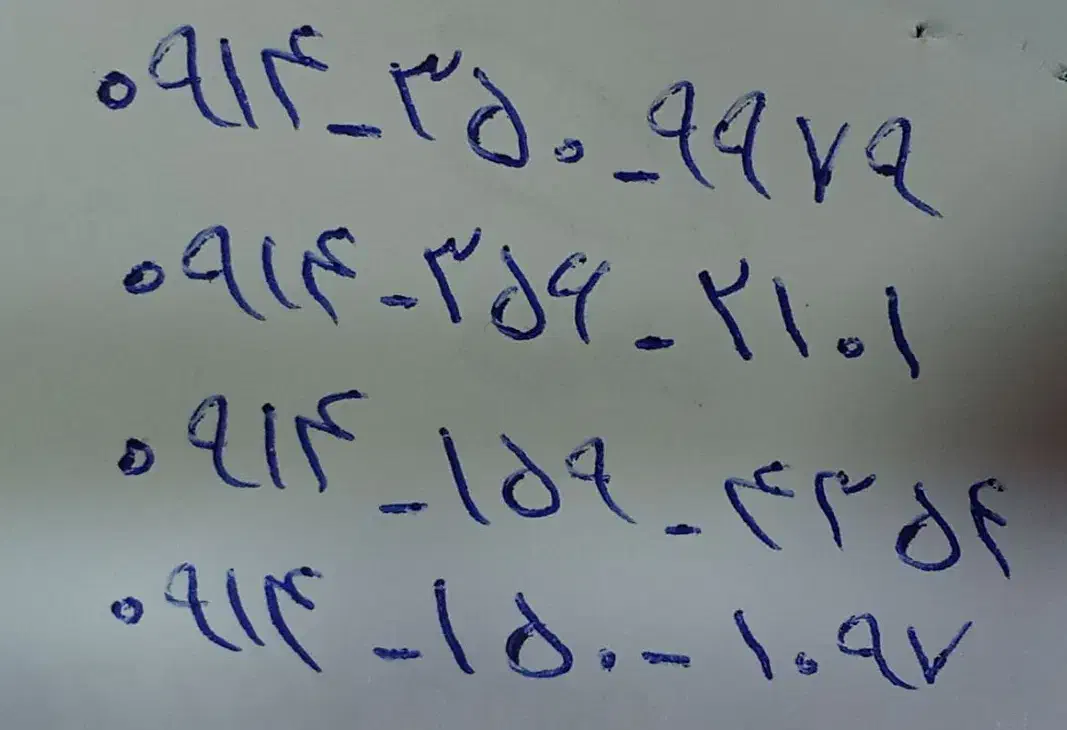 ۰۹۱۴-۳۵۰-۹۹۷۹
۰۹۱۴-۳۵۶-۲۱۰۱
۰۹۱۴-۱۵۹-۴۳۵۴
۰۹۱۴-۱۵۰-۱۰۹۷